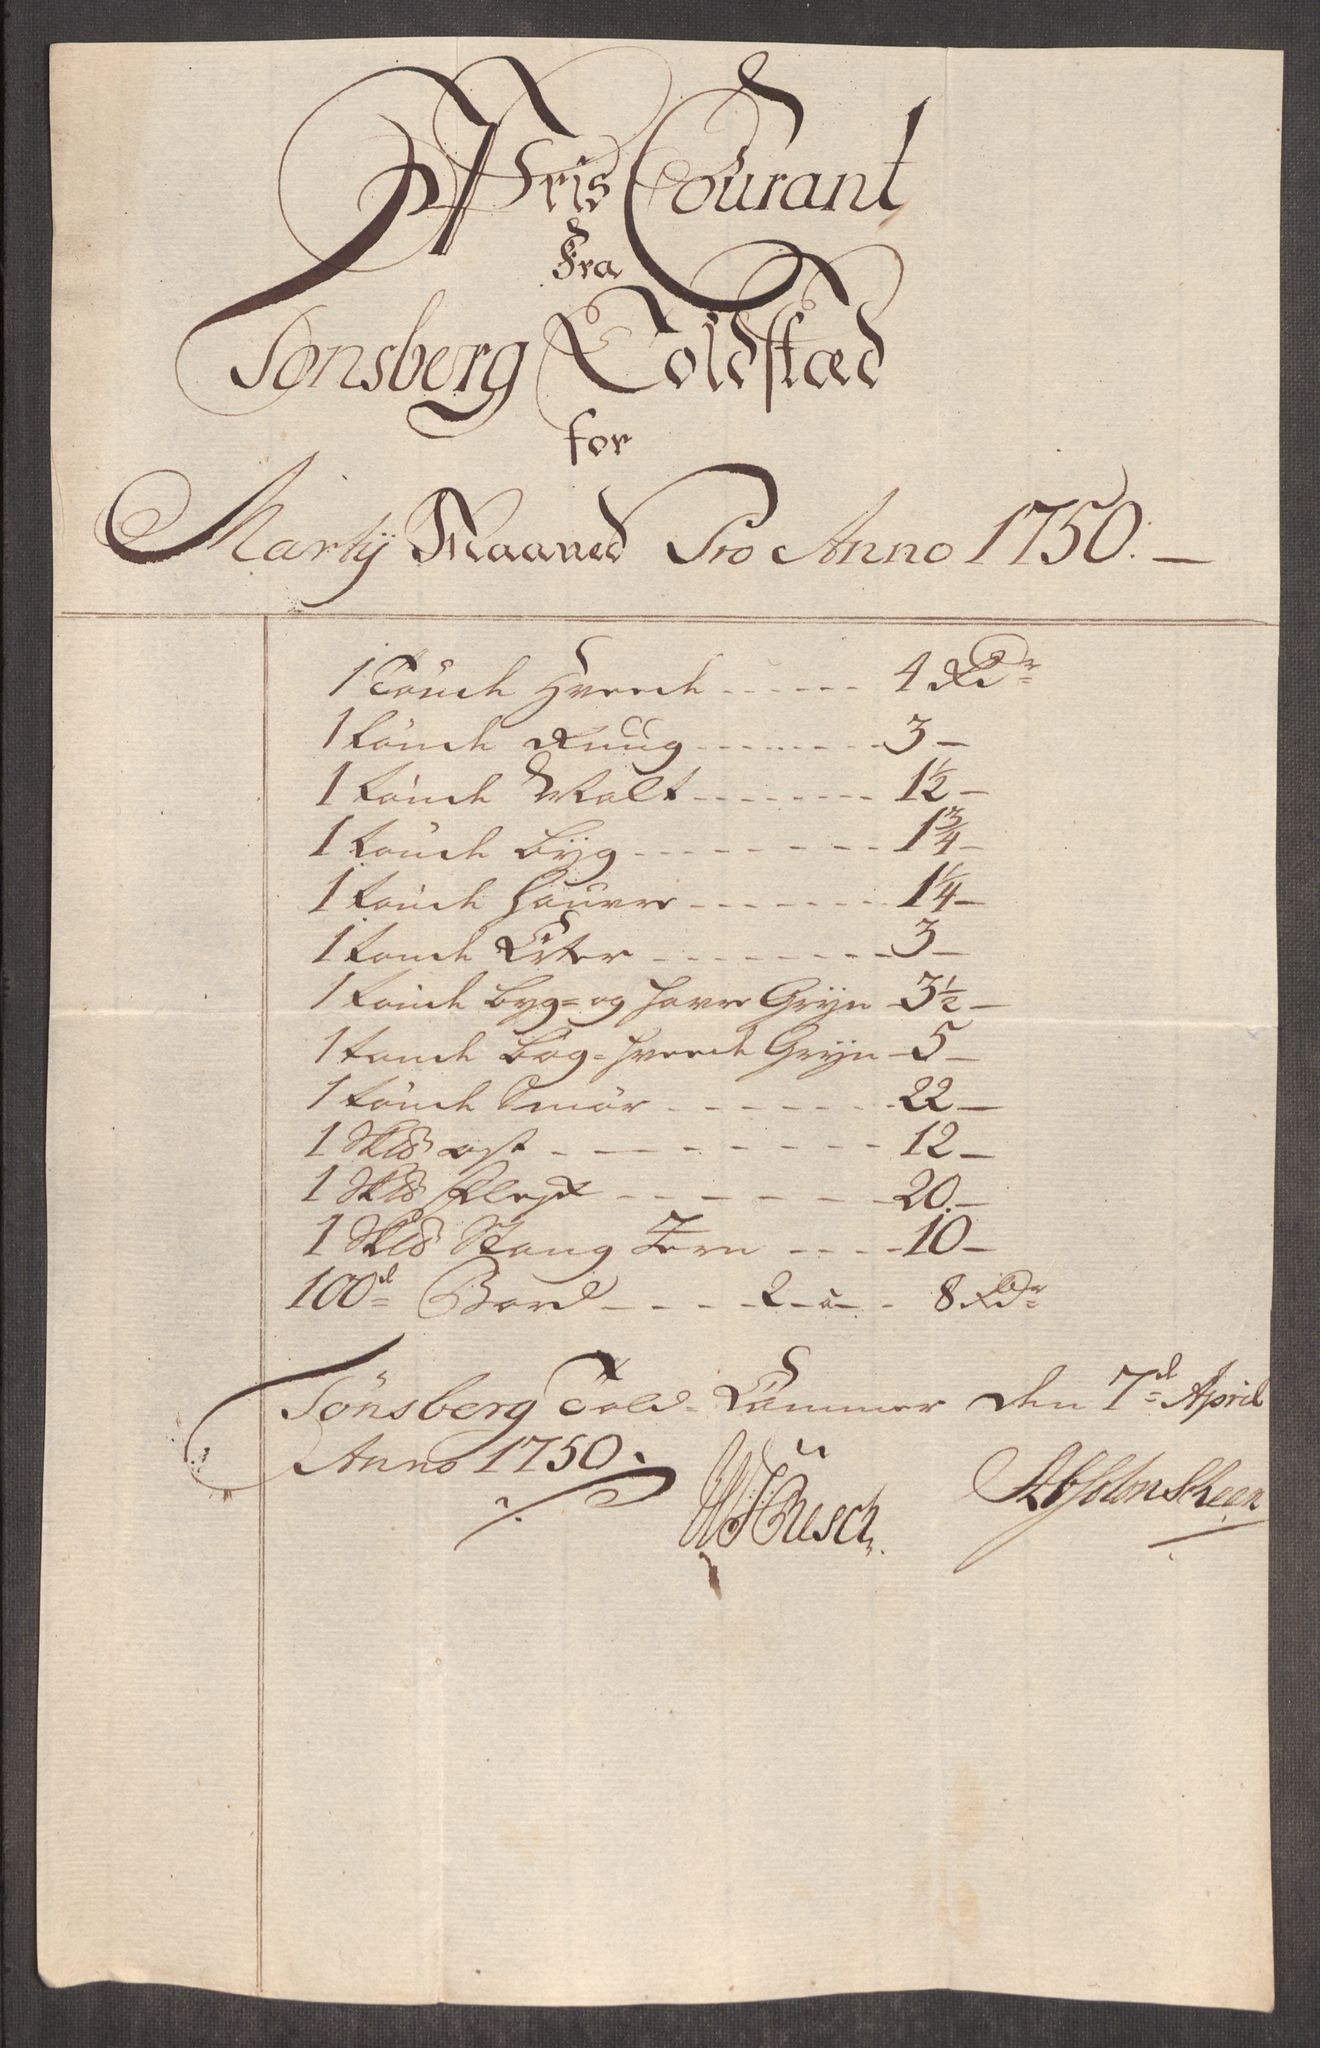 Pris Courant
Fra
Tønsberg Toldstæd
for
Martij Maaned Pro Anno 1750. —
1 Tönde Hveede ...... 4 Rdr
1 tönde Ruug ....... 3 —
1 tönde Malt ....... 1½ —
1 tönde byg ........ 1¾ —
1 tönde Hauvre ...... 1¼ —
1 tönde Erter ........ 3 —
1 tönde byg- og Havre Gryn 3½ —
1 tönde bog-hveede Gryn 5 —
1 tönde Smör ...... 22 —
1 Sk℔ ost ....... 12 —
1 Sk℔ flesk ...... 20. —
1 Sk℔ Stang Jern .... 10 —
100d Bord .... 2 a 8 Rdr
Tönsberg Told-Cammer den 7d April
Anno 1750.
Absolon Skeen